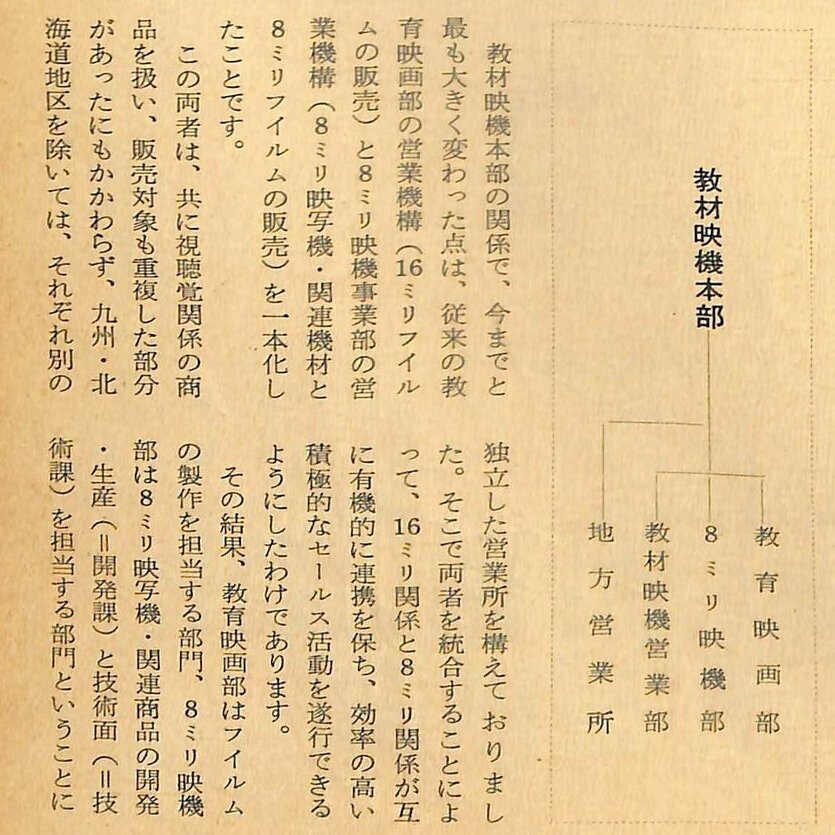 教材映機本部
教育映画部
8ミリ映機部
教材映機営業部
地方営業所
教材映機本部の関係で、今までと
最も大きく変わった点は、従来の教
育映画部の営業機構（16ミリフイル
ムの販売）と8ミリ映機事業部の営
業機構（8ミリ映写機・関連機材と
8ミリフイルムの販売）を一本化し
たことです。
この両者は、共に視聴覚関係の商
品を扱い、販売対象も重複した部分
があったにもかかわらず、九州・北
海道地区を除いては、それぞれ別の
独立した営業所を構えておりまし
た。そこで両者を統合することによ
って、16ミリ関係と8ミリ関係が互
に有機的に連携を保ち、効率の高い
積極的なセールス活動を遂行できる
ようにしたわけであります。
その結果、教育映画部はフイルム
の製作を担当する部門、8ミリ映機
部は8ミリ映写機・関連商品の開発
・生産（＝開発課）と技術面（＝技
術課）を担当する部門ということに